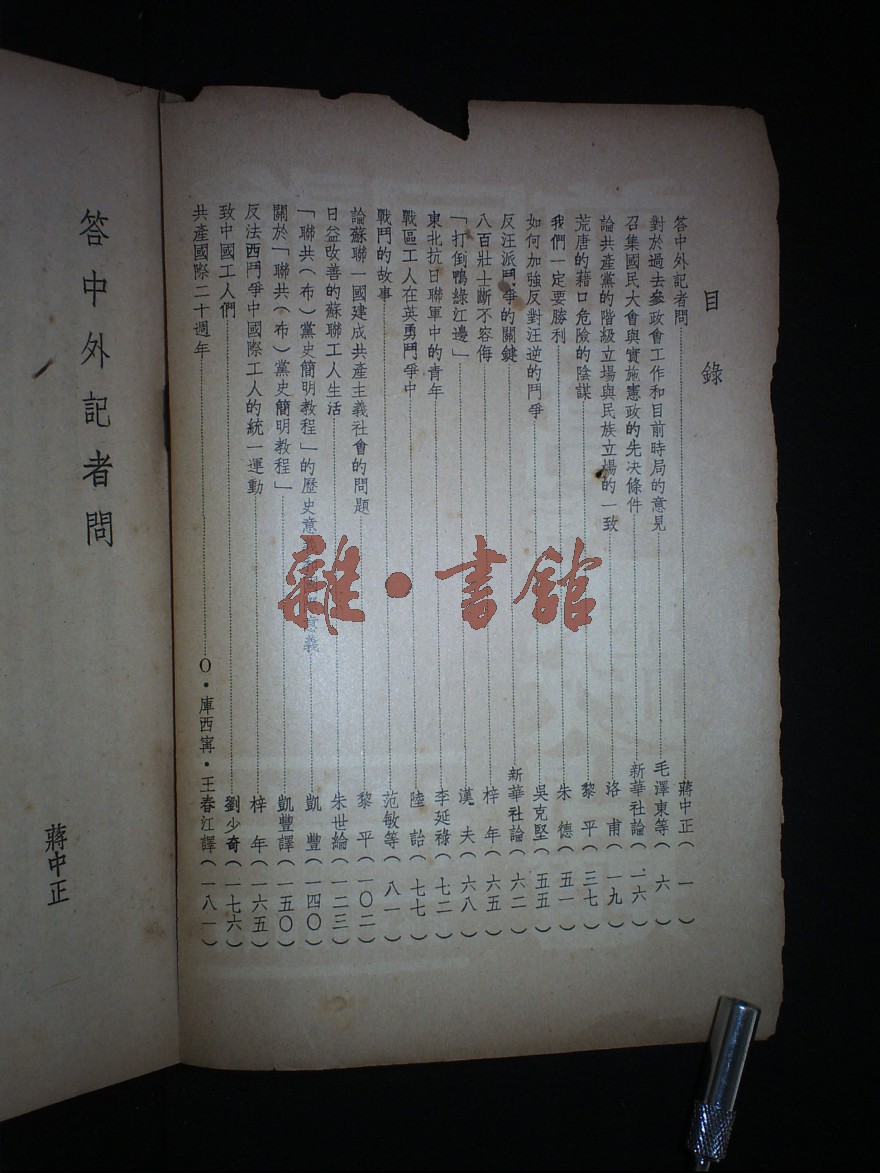 目錄
答中外記者問 蔣中正（一）
對於過去參政會工作和目前時局的意見 毛澤東等（六）
召集國民大會與實施憲政的先決條件 新華社論（一六）
論共產黨的階級立場與民族立場的一致 洛甫（一九）
荒唐的藉口危險的陰謀 黎平（三七）
我們一定要勝利 朱德（五一）
如何加強反對汪逆的鬥爭 吳克堅（五五）
反汪派鬥爭的關鍵 新華社論（六二）
八百壯士斷不容侮 梓年（六五）
「打倒鴨綠江邊」 漢夫（六八）
東北抗日聯軍中的青年 李延祿（七二）
戰區工人在英勇鬥爭中 陸詒（七七）
戰鬥的故事 范敏等（八一）
論蘇聯一國建成共產主義社會的問題 黎平（一〇二）
日益改善的蘇聯工人生活 朱世綸（一二三）
「聯共（布）黨史簡明教程」的歷史意 意義 凱豐（一四〇）
關於「聯共（布）黨史簡明教程」 凱豐譯（一五〇）
反法西鬥爭中國際工人的統一運動 梓年（一六五）
致中國工人們 劉少奇（一七六）
共產國際二十週年 O·庫西寗·王春江譯（一八一）
答中外記者問
蔣中正
雜·書館